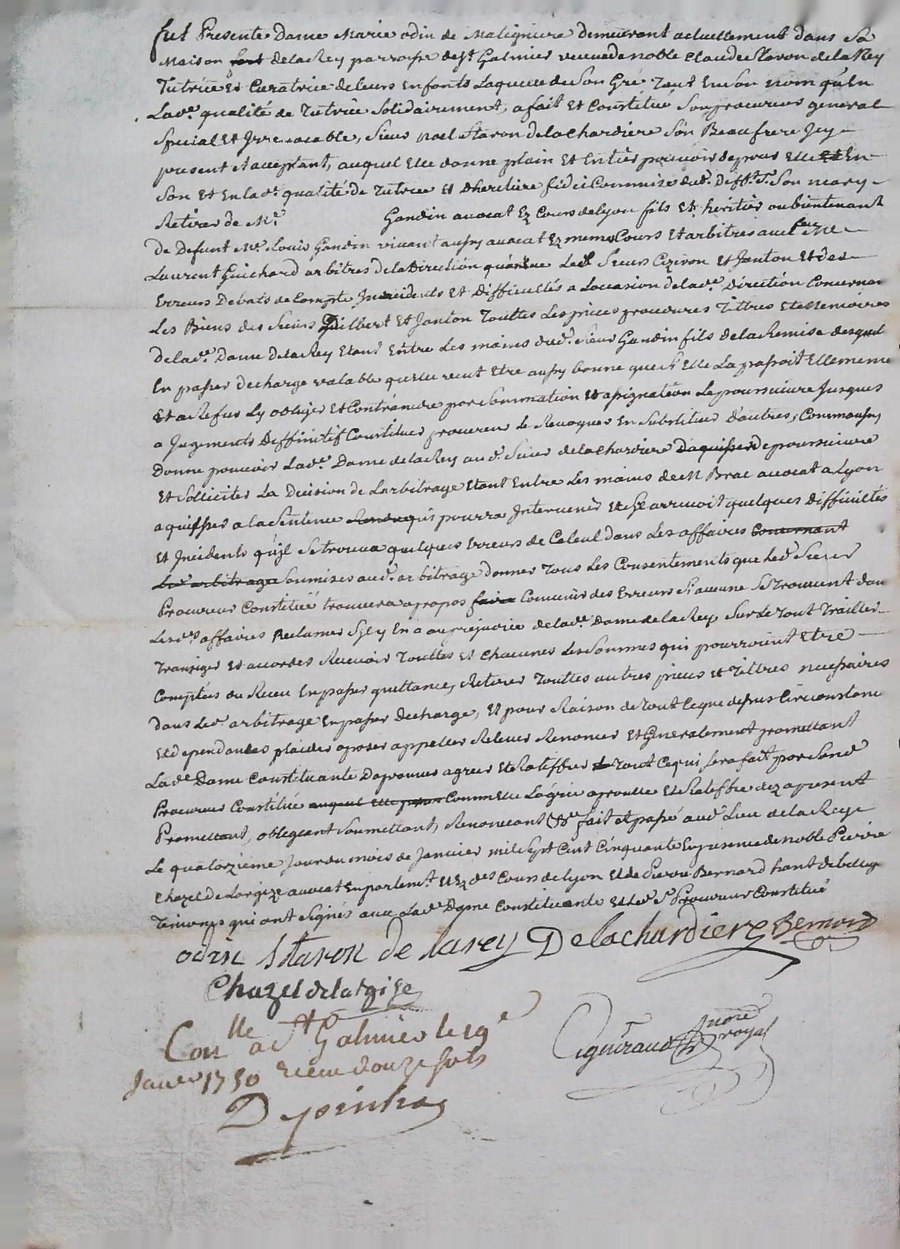 fut Presente Dame Marie odin de Maligniere demeurant actuellement dans Sa
Maison font delaRey parroisse de St. Galmier veuve de noble Claude Staron de la Rey
Tutrice Et Curatrice de leurs Enfants Laquelle de Son Gré Tant En Son nom qu'En
Lade. qualité de Tutrice Solidairement, a fait Et Constitue Son procureur general
Special Et Irrevocable, Sieur noel Staron de la Chardiere Son Beaufrere Icy
present Et acceptant, auquel Elle donne plain Et Entier pouvoir de pour Elle Et En
Son Et En lade. qualité de Tutrice Et dheritiere fidei Commise dud. defft. Sr. Son mary
Retirer de Me. Gandin avocat Ez Cours de lyon fils Et heritier ou bientenant
de Defunt Me. Louis Gandin vivant aussy avocat Ez memes Cours Et arbitres avec feu Me
Laurent Guichard arbitres de la Direction Sieurs Et Janton Et des
Erreurs Debats de Compte Incidents Et Difficultés a Loccasion de lade. Direction Concernant
Les Biens des Sieurs Gilbert Et Janton Touttes Les pieces procedures Tiltres Et Memoires
de lade. Dame de la Rey Etant Entre Les mains dud. Sieur Gandin fils de la Remise desquels
En passer decharge valable quelle veut Etre aussy bonne que Si Elle La passoit Elle meme
Et au Refus Ly obliger Et Contraindre par Sommation Et assignation Le poursuivre Jusques
a Jugements Deffinitif Constituer procureur Le Revoquer En Substituer D'autres, Comme aussy
Donne pouvoir Lade. Dame de la Rey aud. Sieur de la Chardiere De poursuivre
Et Solliciter La Decision de Larbitrage Etant Entre Les mains de M Brac avocat a Lyon
a la Sentence pourra Intervenir Et Sil arrivoit quelques Difficultés
Et Incidents qu'il Se trouva quelques Erreurs de Calcul dans Les affaires Concernant
Led. arbitrage Soumises aud. arbitrage donner Tous Les Consentements que Led. Sieur
Procureur Constitué trouvera apropos faire Convenir des Erreurs Si aucune Se trouvent dans
Lesd. affaires Reclamer Sil y En a au prejudice de lade. Dame de la Rey Sur Le Tout Traitter
Transiger Et accorder Recevoir Touttes Et Chacunes Les Sommes qui pourroient Etre
Comptés ou Receu En passer quittance, Retirer Touttes autres pieces Et Tiltres necessaires
dans Led. arbitrage En passer Decharge, Et pour Raison de Tout Ceque dessus Circonstances
Et dependances plaider oposer appeller Relever Renoncer Et Generalement promettant
Lade. Dame Constituante Daprouver agreer Et Ratiffier Tout Cequi Sera fait par Sond.
Procureur Constitué Comme Elle Lagrée aprouve Et Ratiffie dez apresent
Promettant, obligeant Soumettant, Renoncant &c. fait Et passé aud. Lieu de la Rey
Le quatorzieme Jour du mois de Janvier mil Sept Cent Cinquante En presence de noble Pierre
Chazel de Lorgize avocat En parlemt. Et Ez des Cours de Lyon Et de Pierre Bernard
Temoings qui ont Signés avec Lade. Dame Constituante Et led. Sr. Procureur Constitué
odin Staron de larey Delachardiere Bernard
Chazel delorgise
Conlle a St Galmier le 19e
Janver 1750 receu douze sols
Depoinha
Pigniraud nore royal